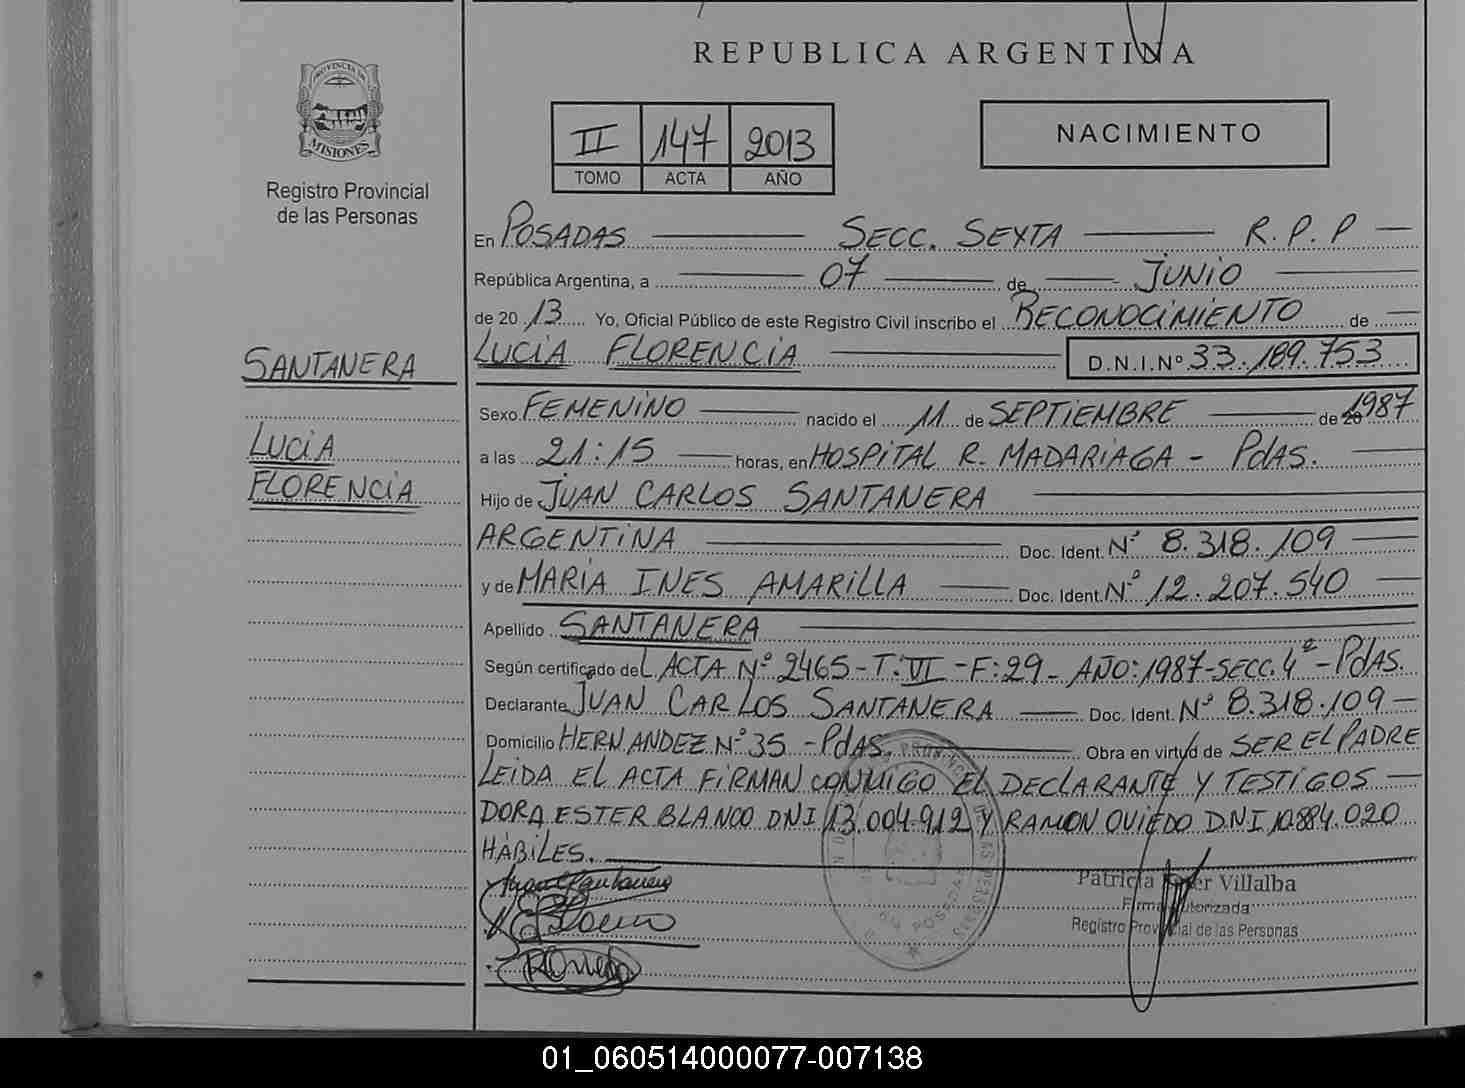 REPUBLICA ARGENTINA
PROVINCIA DE
MISIONES
Registro Provincial
de las Personas
II 147 2013
TOMO ACTA AÑO
NACIMIENTO
En POSADAS SECC. SEXTA R.P.P
República Argentina, a 07 de JUNIO
de 20 13 Yo, Oficial Público de este Registro Civil inscribo el RECONOCIMIENTO de
SANTANERA
LUCIA FLORENCIA D.N.I.Nº 33.189.753
Sexo FEMENINO nacido el 11 de SEPTIEMBRE de 1987
LUCIA
a las 21:15 horas, en HOSPITAL R. MADARIAGA - PdAS.
FLORENCIA
Hijo de JUAN CARLOS SANTANERA
ARGENTINA Doc. Ident. Nº 8.318.109
y de MARIA INES AMARILLA Doc. Ident. Nº 12.207.540
Apellido SANTANERA
Según certificado del ACTA Nº 2465-T:VI-F:29-AÑO:1987-SECC.4ª-PdAS.
Declarante JUAN CARLOS SANTANERA Doc. Ident. Nº 8.318.109
Domicilio HERNANDEZ Nº 35 - PdAS. Obra en virtud de SER EL PADRE
LEIDA EL ACTA FIRMAN CONMIGO EL DECLARANTE Y TESTIGOS
DORA ESTER BLANCO DNI 13.004.912 Y RAMON OVIEDO DNI 10.884.020
HÁBILES.
Patricia Villalba
Firma Autorizada
Registro Provincial de las Personas
01_060514000077-007138